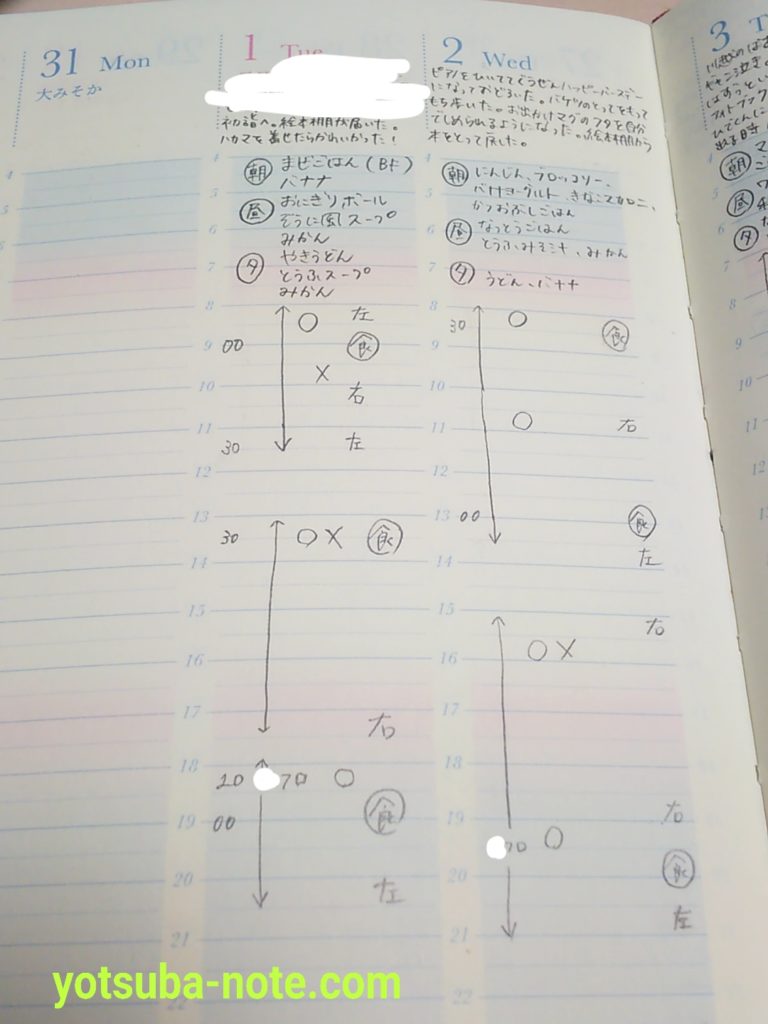 31 Mon
大みそか
1 Tue
初詣へ。絵本棚が届いた。
ハカマを着せたらかわいかった!
朝 まぜごはん(BF)
バナナ
昼 おにぎりボール
ぞうに風スープ
みかん
夕 やきうどん
とうふスープ
みかん
4
5
6
7
8 ○ 左
9 00 食
10 × 右
11 30 左
12
13 30 ○× 食
14
15
16
17 右
18 20 フロ ○
19 00 食
20 左
21
22
2 Wed
ピアノをひいててどうぜんハッピーバースデー
になっておどろいた。バケツのとってをもって
もち歩いた。お出かけマグのフタを自分
でしめられるようになった。絵本棚から
本をとって戻した。
朝 にんじん、ブロッコリー、
バナナヨーグルト、きなこマカロニ、
かつおぶしごはん
昼 なっとうごはん
とうふみそシチ、みかん
夕 うどん、バナナ
8 30 ○ 食
9
10
11 ○ 右
12
13 00 食
14 左
15 右
16 ○×
17
18
19 右
フロ ○
20 食
21 左
22
3 T
朝
昼
夕
yotsuba-note.com